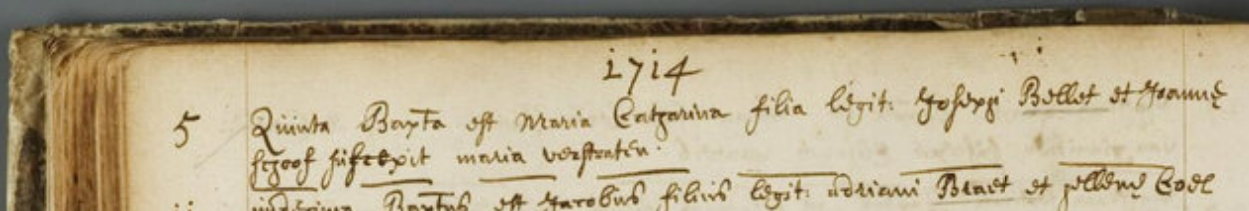 1714
5 Quinta Bapta est Maria Catharina filia legit: Josephi Bellet et Joannę
schoof suscepit maria verstraten.
undecima Baptus est Jacobus filius legit: Adriani Braet et pellenę Coel